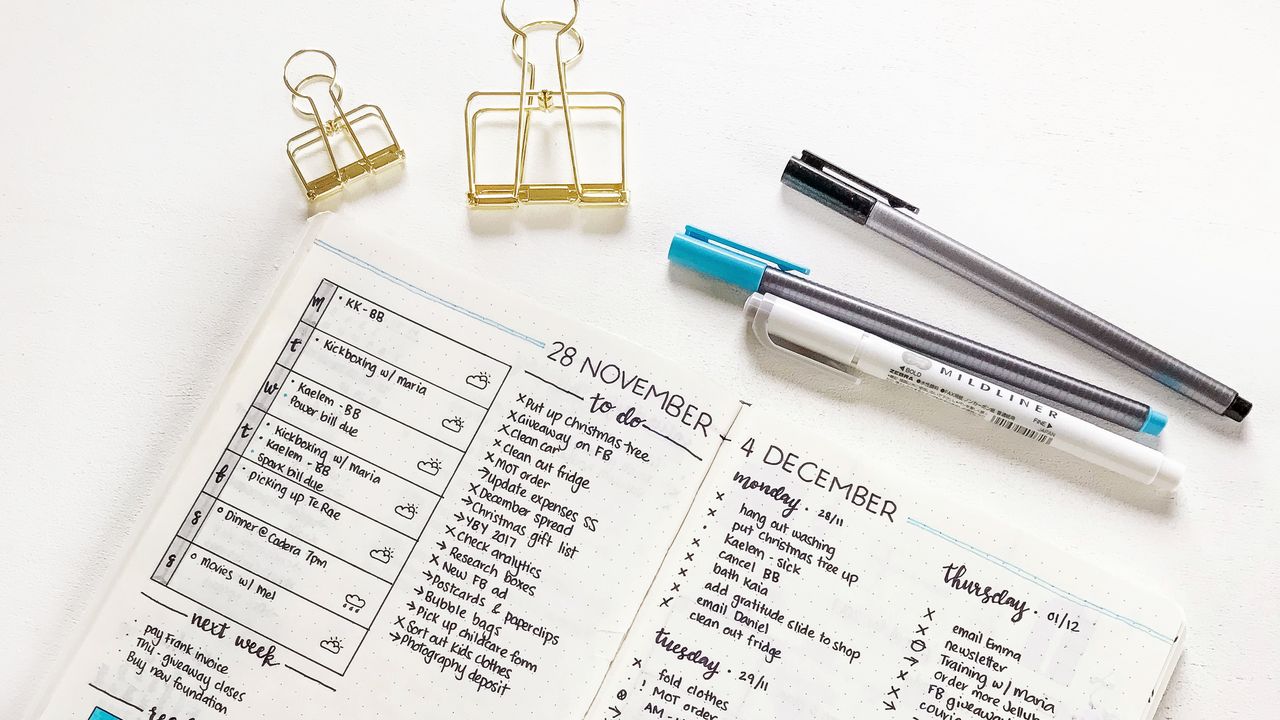 m
• KK - BB
t
• Kickboxing w/ maria
w
• Kaelem - BB
• Power bill due
t
• Kickboxing w/ Maria
• Kaelem - BB
• Spark bill due
f
• picking up Te Rae
s
o Dinner @ Cadera 7pm
s
o movies w/ mel
next week
• pay Frank invoice
• Thu - giveaway closes
• Buy new foundation
28 NOVEMBER -
to do
x Put up christmas tree
x Giveaway on FB
x Clean car
x Clean out fridge
x MOT order
→ Update expenses SS
x December spread
→ Christmas gift list
→ YBY 2017
x Check analytics
→ Research boxes
x New FB ad
→ Postcards & paperclips
→ Bubble bags
→ Pick up childcare form
x Sort out kids clothes
→ Photography deposit
- 4 DECEMBER
monday. 28/11
x hang out washing
x put Christmas tree up
• Kaelem - sick
x cancel BB
x bath Kaia
x add gratitude slide to shop
x email Daniel
x clean out fridge
tuesday. 29/11
x fold clothes
! MOT order
thursday. 01/12
x email Emma
x newsletter
Training w/ maria
→ order more
x FB giveaway
◀BOLD
ZEBRA
MILDLINER
FINE▶
JAPAN